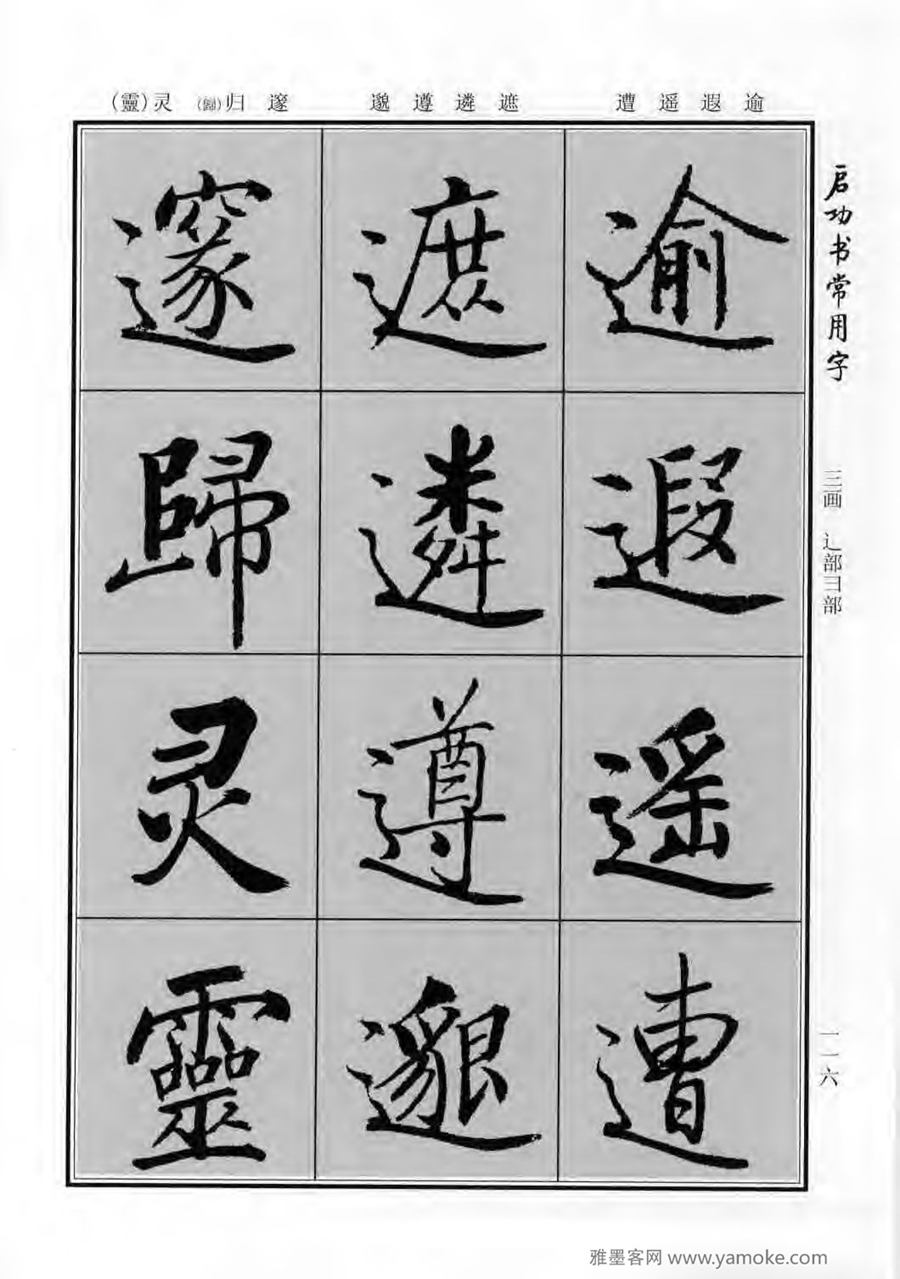 启功书常用字
三画 辶部彐部
一一六
逾 遐 遥 遭
遮 遴 遵 邈
邃 归(歸) 灵(靈)
逾
遐
遥
遭
遮
遴
遵
邈
邃
歸
灵
靈
雅墨客网 www.yamoke.com